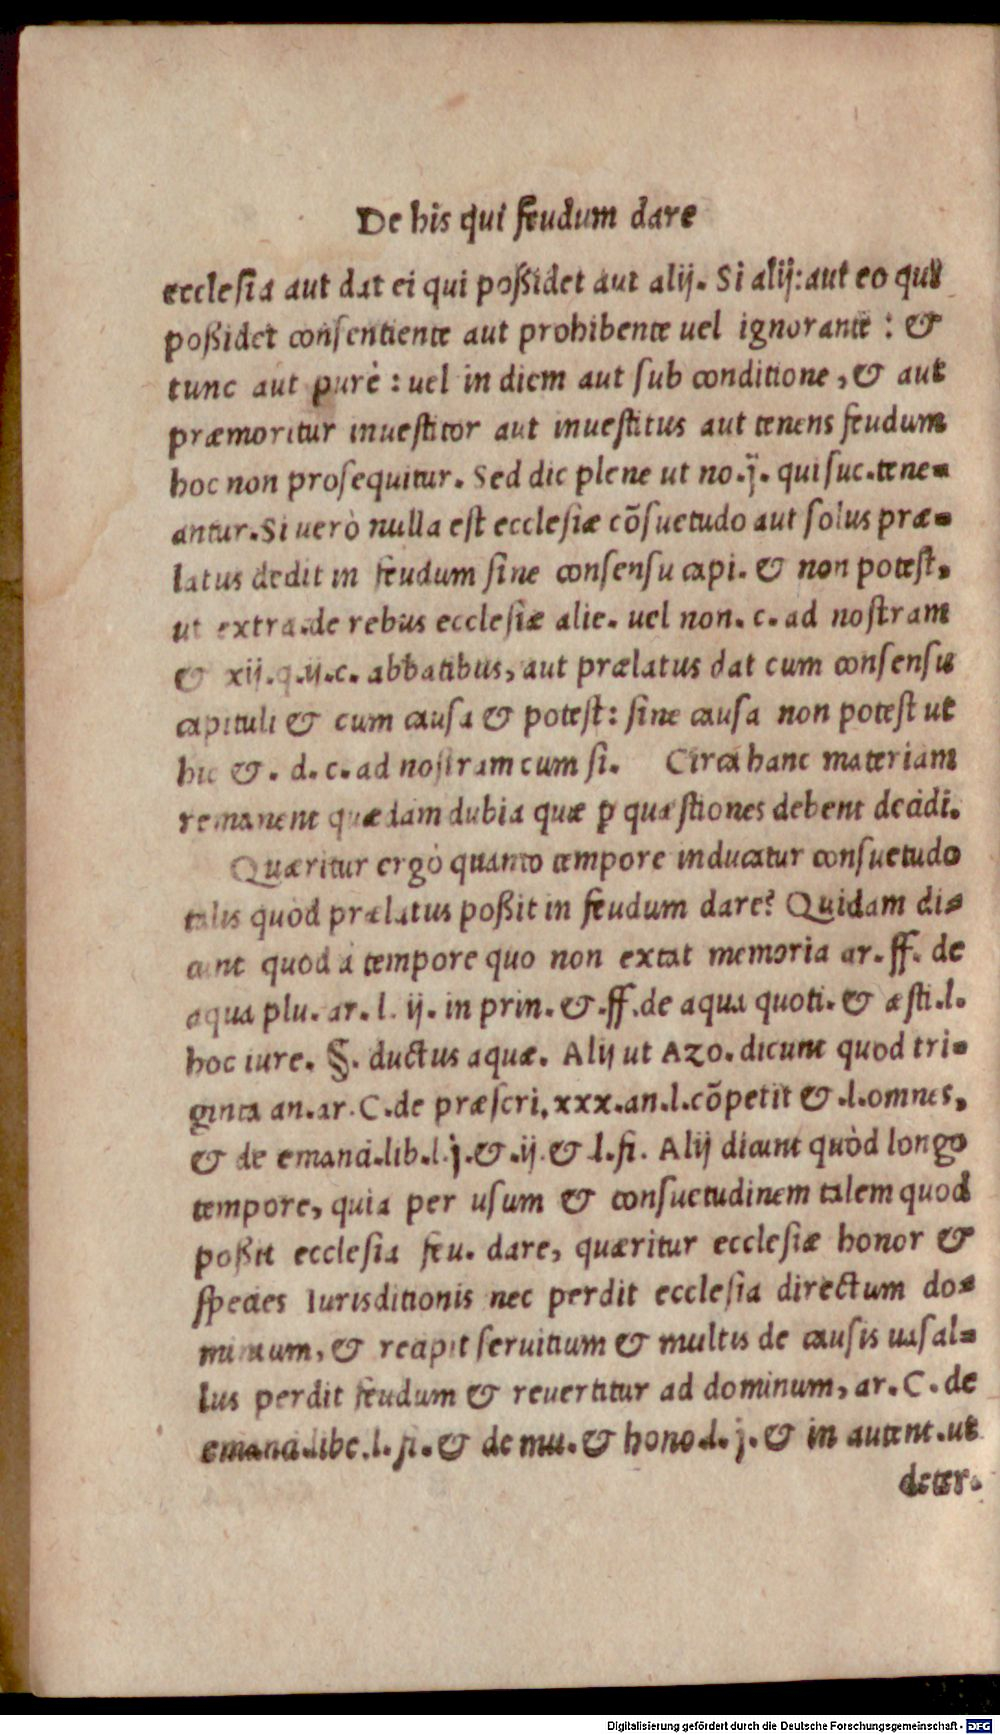 De his qui feudum dare
ecclesia aut dat ei qui poßidet aut alij. Si alij: aut eo qui
poßidet consentiente aut prohibente uel ignorante : &
tunc aut purè : uel in diem aut sub conditione, & aut
præmoritur inuestitor aut inuestitus aut tenens feudum
hoc non prosequitur. Sed dic plene ut no. j. qui suc. tene-
antur. Si uerò nulla est ecclesiæ cõsuetudo aut solus præ-
latus dedit in feudum sine consensu capi. & non potest,
ut extra. de rebus ecclesiæ alie. uel non. c. ad nostram
& xij. q. ij. c. abbatibus, aut prælatus dat cum consensu
capituli & cum causa & potest: sine causa non potest ut
hic &. d. c. ad nostram cum si. Circa hanc materiam
remanent quædam dubia quæ ꝑ quæstiones debent decidi.
Quæritur ergò quanto tempore inducatur consuetudo
talis quòd prælatus poßit in feudum dare? Quidam di-
cunt quod à tempore quo non extat memoria ar. ff. de
aqua plu. ar. l. ij. in prin. & .ff. de aqua quoti. & æsti. l.
hoc iure. §. ductus aquæ. Alij ut Azo. dicunt quod tri-
ginta an. ar. C. de præscri. xxx. an. l. cõpetit & .l. omnes,
& de emanci. lib. l. j. & .ij. & l. fi. Alij dicunt quòd longo
tempore, quia per usum & consuetudinem talem quod
poßit ecclesia feu. dare, quæritur ecclesiæ honor &
species Iurisditionis nec perdit ecclesia directum do-
minium, & recipit seruitium & multis de causis uasal-
lus perdit feudum & reuertitur ad dominum, ar. C. de
emanci. libe. l. fi. & de mu. & hono. l. j. & in autent. ut
deter.
Digitalisierung gefördert durch die Deutsche Forschungsgemeinschaft - DFG